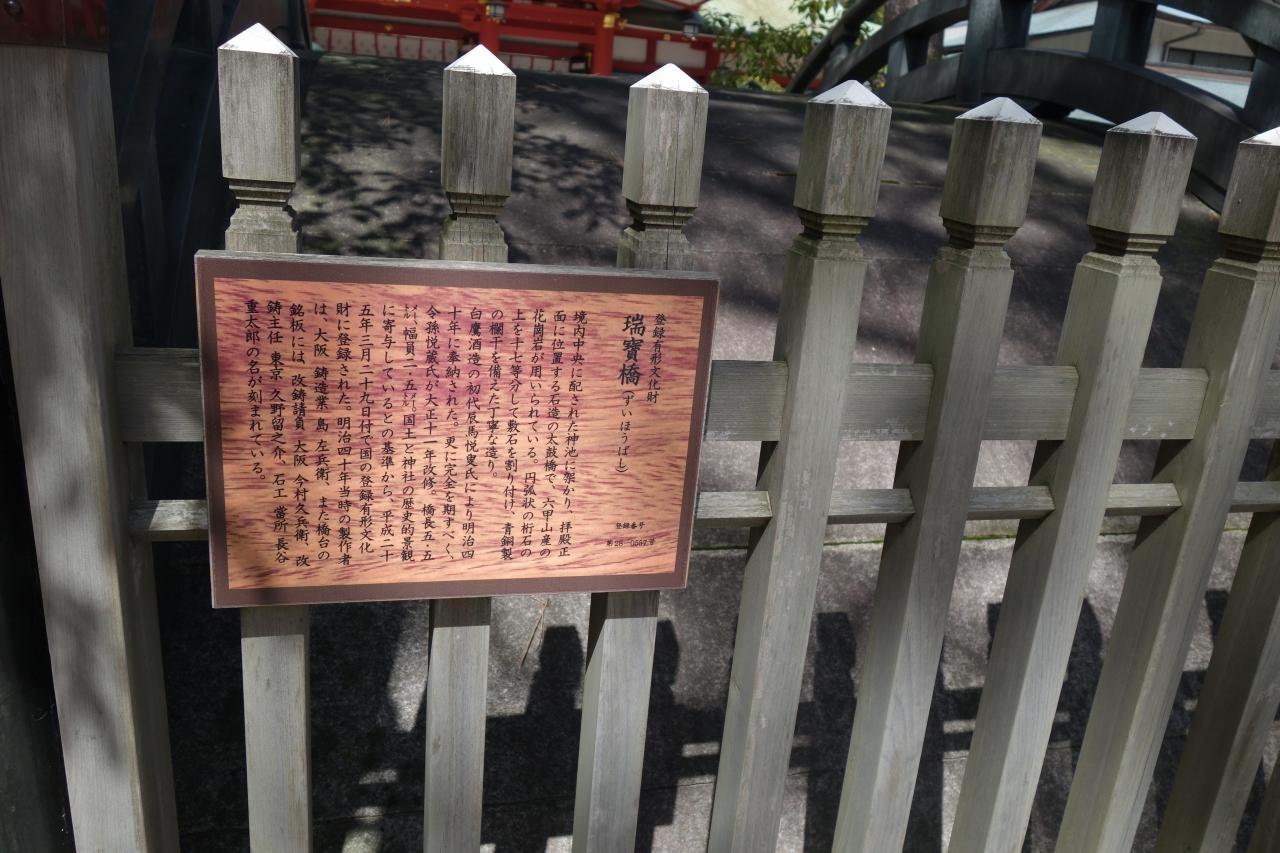 登録有形文化財
瑞寳橋（ずいほうばし）
登録番号
第28-0557号
境内中央に配された神池に架かり、拝殿正
面に位置する石造の太鼓橋で、六甲山産の
花崗岩が用いられている。円弧状の桁石の
上を十七等分して敷石を割り付け、青銅製
の欄干を備えた丁寧な造り。
白鷹酒造の初代辰馬悦叟氏により明治四
十年に奉納された。更に完全を期すべく、
令孫悦蔵氏が大正十一年改修。橋長五・五
㍍、幅員二・五㍍。国土と神社の歴史的景観
に寄与しているとの基準から、平成二十
五年三月二十九日付で国の登録有形文化
財に登録された。明治四十年当時の製作者
は、大阪 鋳造業 島 左兵衛、また橋台の
銘板には、改鋳請負 大阪 今村久兵衛、改
鋳主任 東京 久野留之介、石工 當所 長谷
重太郎の名が刻まれている。